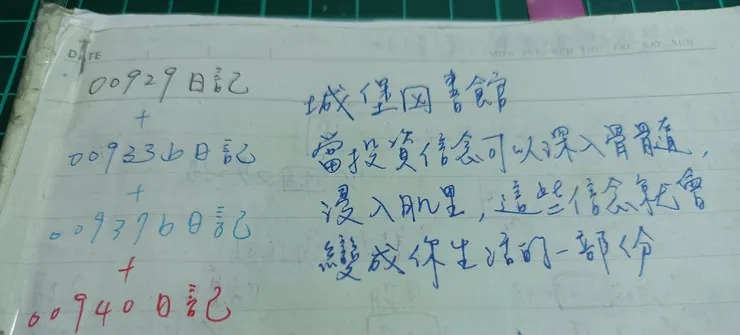 DATE
MON TUE WED THU FRI SAT SUN
00929日記
+
00933b日記
+
00937b日記
+
00940日記
城堡図書館
當投資信念可以深入骨髓,
浸入肌里,這些信念就會
變成你生活的一部份